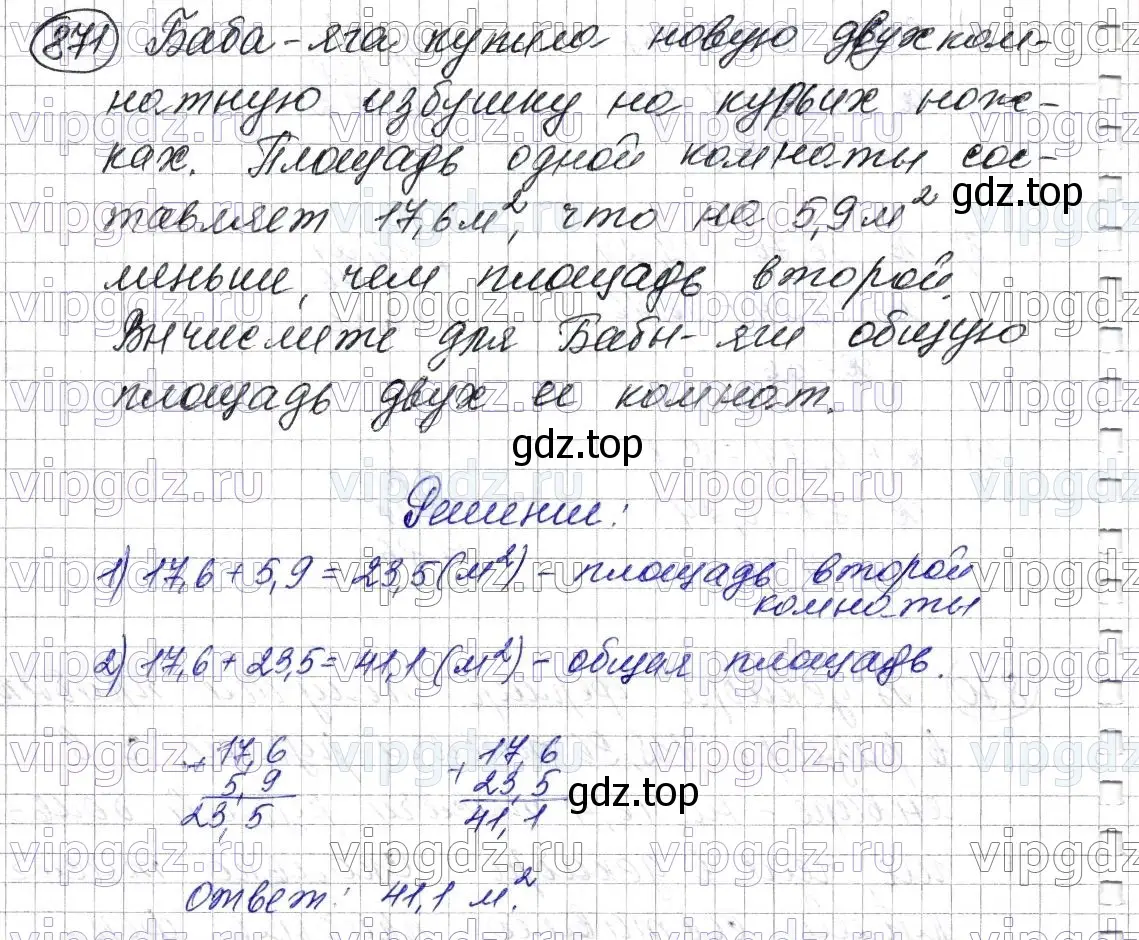 871 Баба-яга купила новую двухком-
натную избушку на курьих нож-
ках. Площадь одной комнаты сос-
тавляет 17,6 м², что на 5,9 м²
gdz.top
меньше, чем площадь второй.
Вычислите для Бабы-яги общую
площадь двух ее комнат.
gdz.top
Решение:
1) 17,6 + 5,9 = 23,5 (м²) - площадь второй
комнаты
2) 17,6 + 23,5 = 41,1 (м²) - общая площадь.
+ 17,6 + 17,6
5,9 23,5
23,5 41,1
gdz.top
Ответ: 41,1 м².
vipgdz.ru